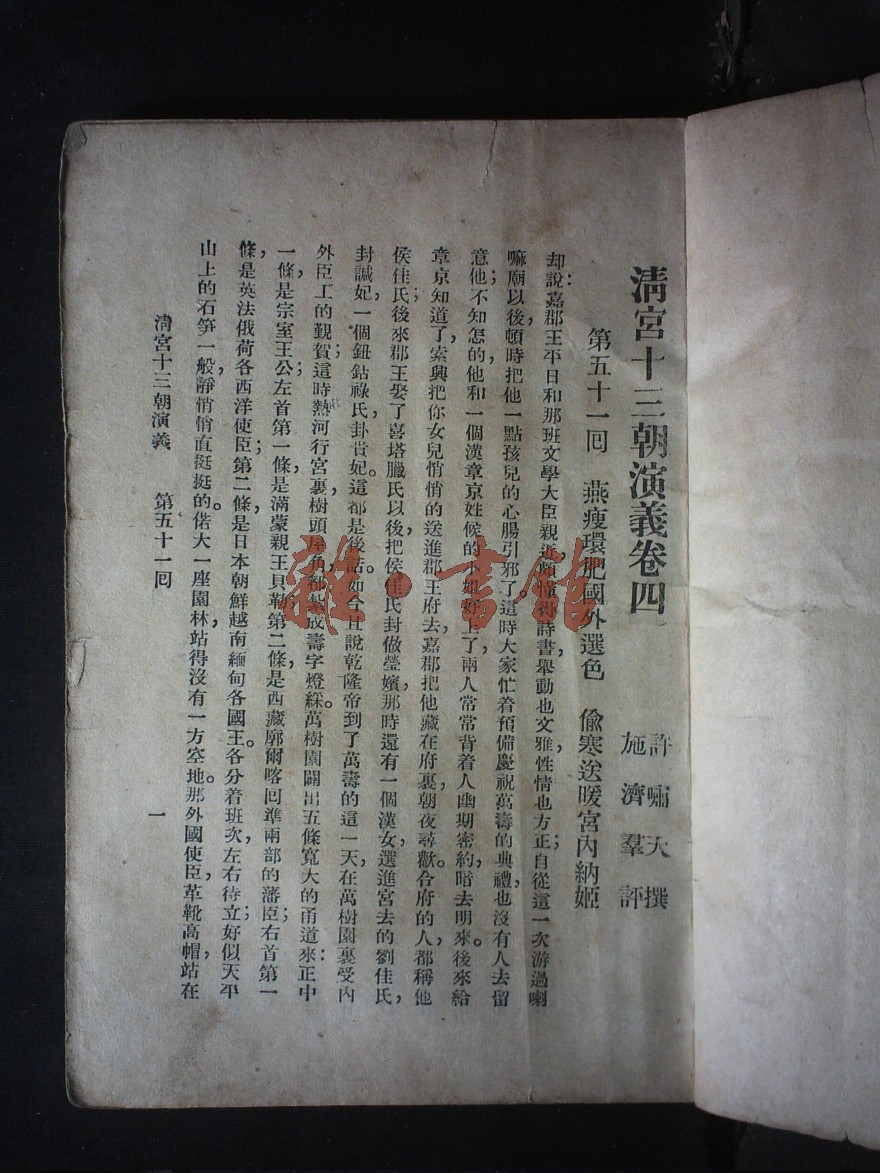 清宮十三朝演義卷四
許嘯天撰
施濟羣評
第五十一回 燕瘦環肥國外選色 偷寒送暖宮內納姬
却說：嘉郡王平日和那班文學大臣親近，頗懂得詩書，舉動也文雅，性情也方正；自從這一次游過喇
嘛廟以後，頓時把他一點孩兒的心腸引邪了，這時大家忙着預備慶祝萬壽的典禮，也沒有人去留
意他；不知怎的他和一個漢章京姓候的小姐好上了，兩人常常背着人幽期密約，暗去明來。後來給
章京知道了，索興把你女兒悄悄的送進郡王府去，嘉郡把他藏在府裏，朝夜尋歡。合府的人，都稱他
侯佳氏；後來郡王娶了喜塔臘氏以後，把侯佳氏封做瑩嬪，那時還有一個漢女，選進宮去的劉佳氏，
封諴妃，一個鈕鈷祿氏卦貴妃。這都是後話。如今且說乾隆帝到了萬壽的這一天，在萬樹園裏受內
外臣工的覲賀；這時熱河行宮裏，樹頭屋角，都紮成壽字燈綵。萬樹園闢出五條寬大的甬道來：正中
一條，是宗室王公；左首第一條，是滿蒙親王貝勒；第二條，是西藏廓爾喀回準兩部的藩臣；右首第一
條，是英法俄荷各西洋使臣；第二條，是日本朝鮮越南緬甸各國王。各分着班次，左右待立；好似天平
山上的石筍一般，靜悄悄直挺挺的。偌大一座園林，站得沒有一方空地。那外國使臣，革靴高帽，站在
清宮十三朝演義 第五十一回 一
雜·書館